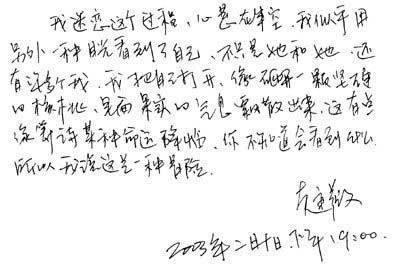 我迷恋这个过程,心悬在半空,我似乎用
另外一种眼光看到了自己,不只是她和她,还
有许多个我,我把自己打开,像砸开一颗坚硬
的核桃,里面果实的气息飘散出来,这有点
像等待某种命运降临,你不知道会看到什么
所以我说这是一种冒险.
2003年二月十日.下午19:00.